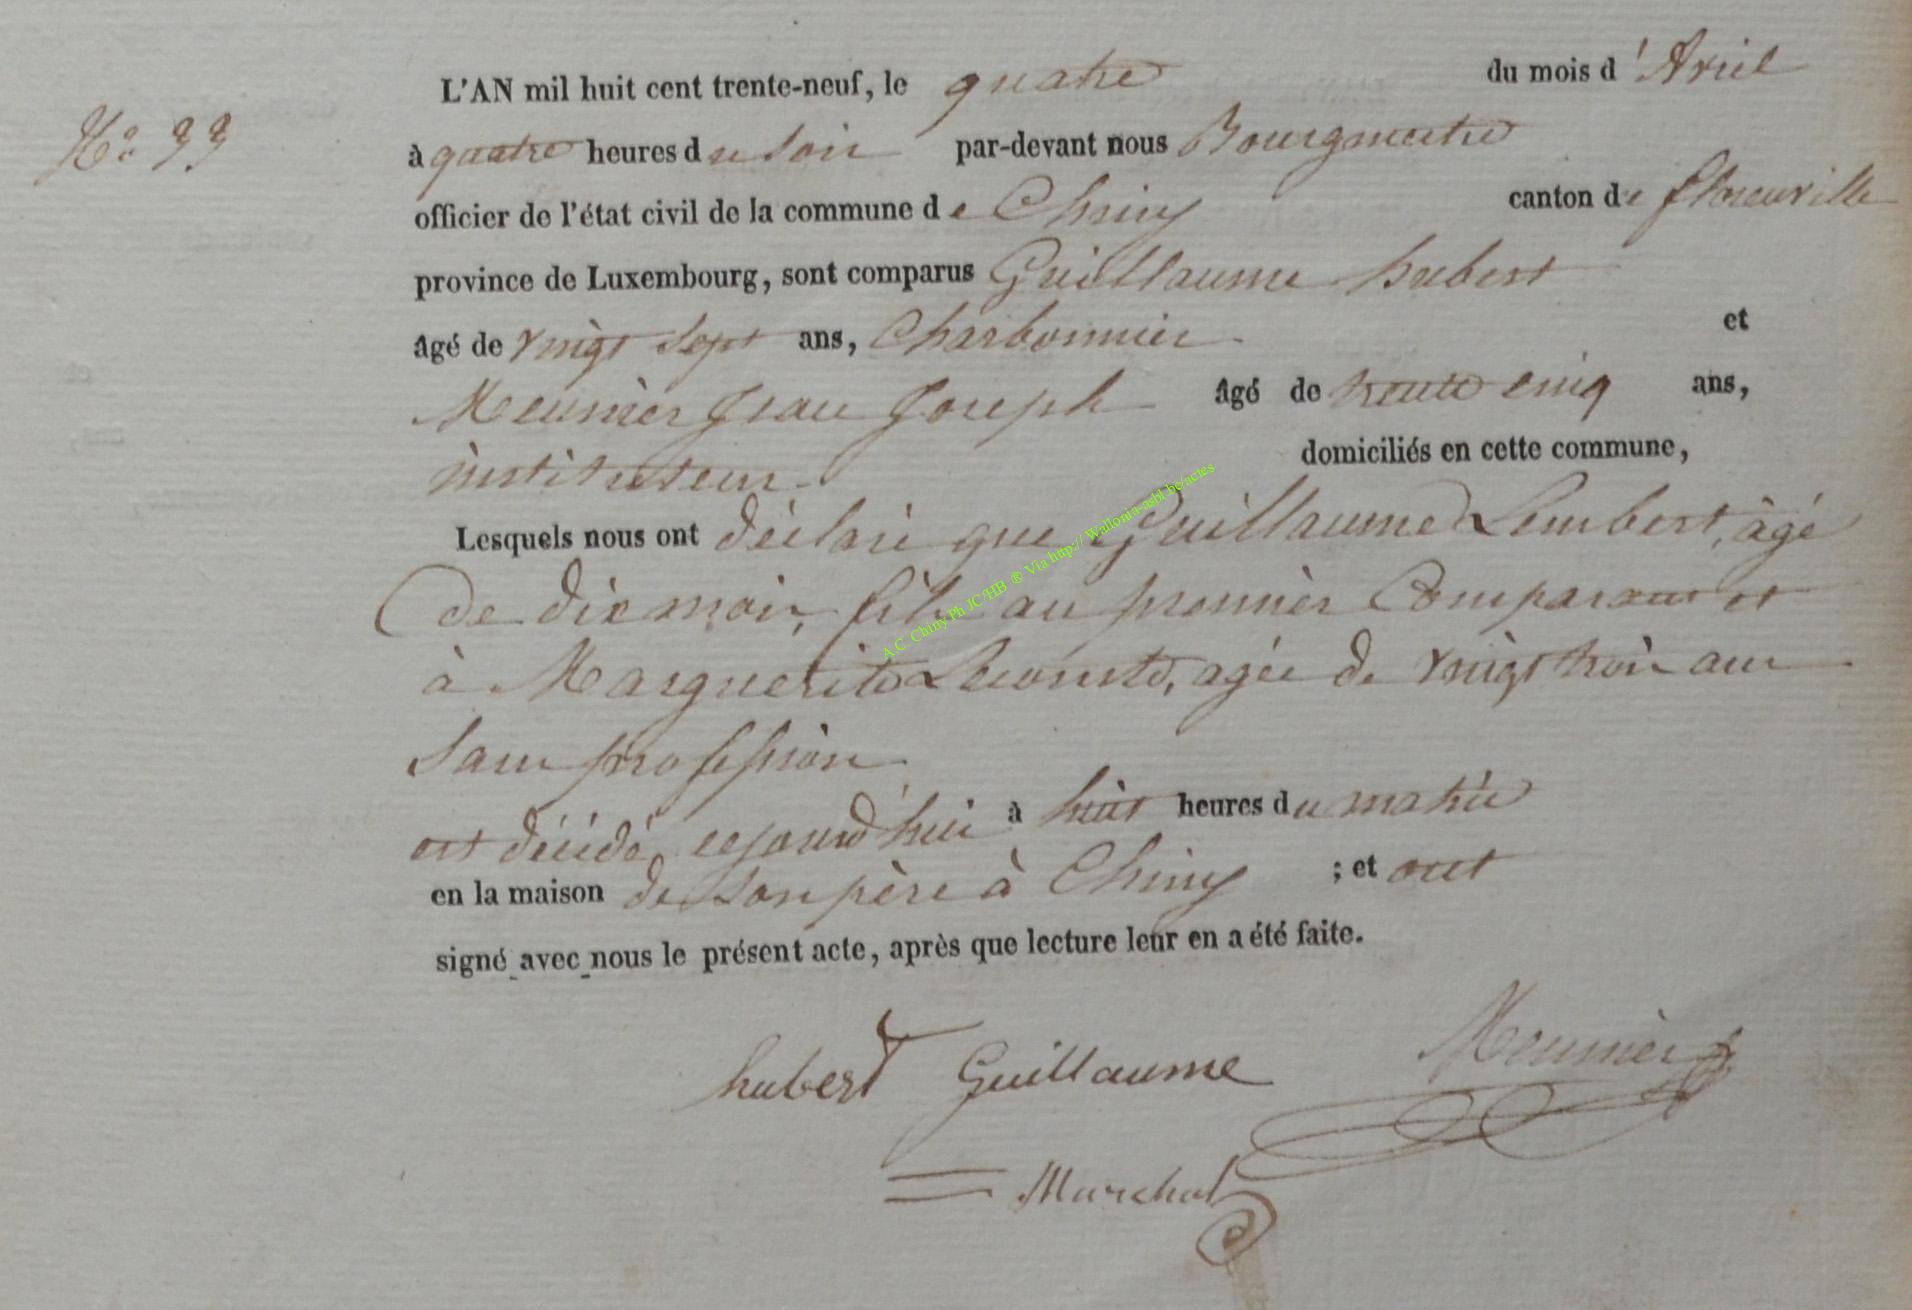 L'AN mil huit cent trente-neuf, le quatre du mois d'Avril
N.° 99
à quatre heures du soir par-devant nous Bourgmestre
officier de l'état civil de la commune de Chiny canton de florenville
province de Luxembourg, sont comparus Guillaume hubert
âgé de vingt sept ans, Charbonnier et
Meunier Jean Joseph âgé de trente cinq ans,
instituteur domiciliés en cette commune,
Lesquels nous ont déclaré que Guillaume Lambert, âgé
de dix mois, fils au premier Comparant et
à Marguerite Lecomte, agée de vingt trois ans
Sans profession
est décédé, cejourd'hui à huit heures du matin
en la maison de Son père à Chiny ; et ont
signé avec nous le présent acte, après que lecture leur en a été faite.
hubert Guillaume Meunier
Marchal
A.C. Chiny Ph JC/HB ® Via http:// Wallonia-asbl.be/actes